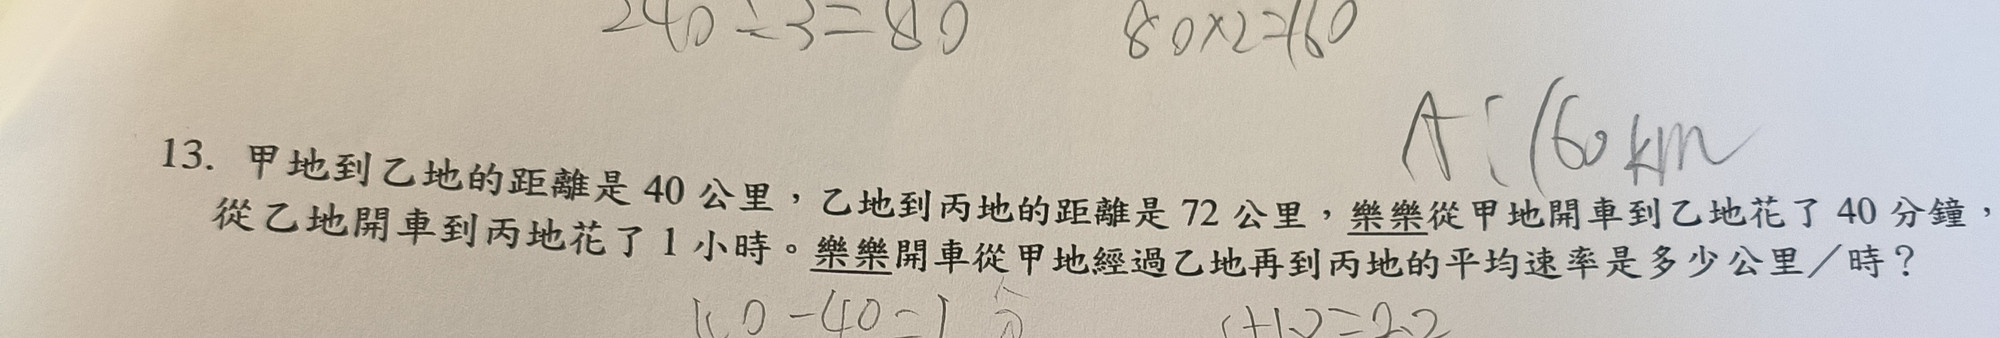 240÷3=80 80×2=160
A:160km
13. 甲地到乙地的距離是 40 公里，乙地到丙地的距離是 72 公里，樂樂從甲地開車到乙地花了 40 分鐘，
從乙地開車到丙地花了 1 小時。樂樂開車從甲地經過乙地再到丙地的平均速率是多少公里／時？